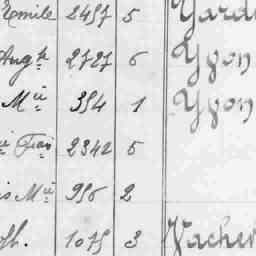 Emile 2457 5 Yard
Aug.te 2727 6 Yvon
M.ie 354 1 Yvon
2342 5
M.ie 956 2
Jh. 1075 3 Vacher